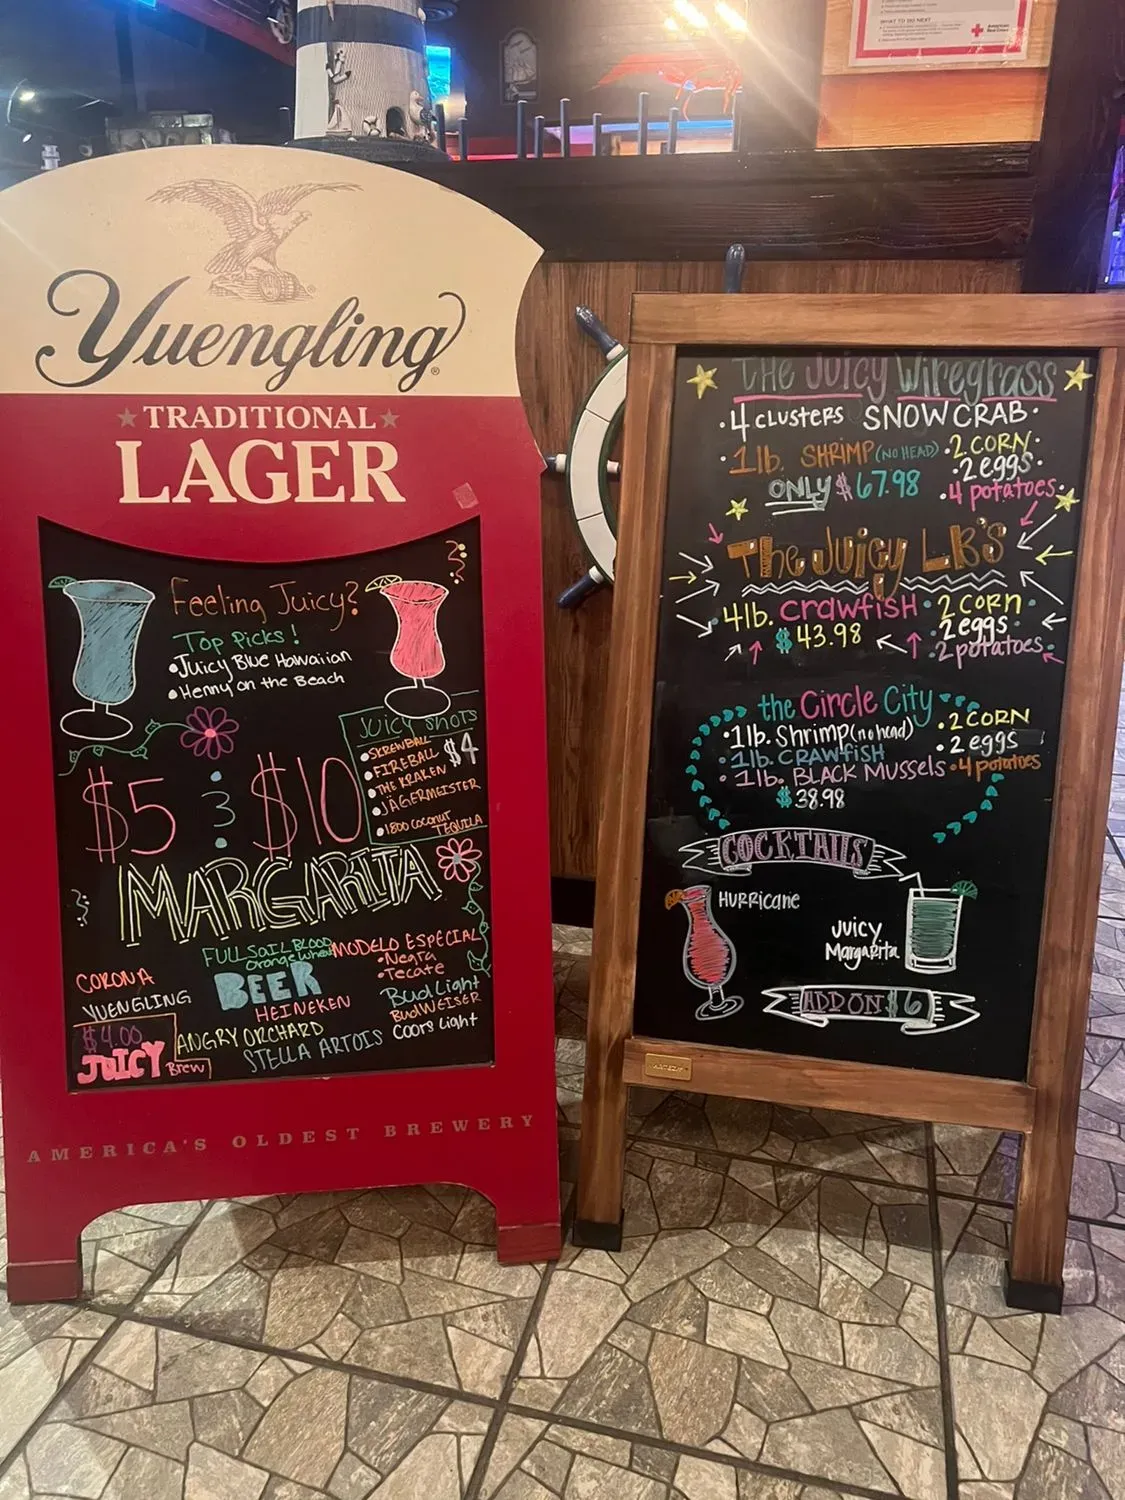 WHAT TO DO NEXT
American Red Cross
Yuengling®
TRADITIONAL
LAGER
Feeling Juicy?
Top Picks!
•Juicy Blue Hawaiian
•Henny on the Beach
Juicy Shots
$4
•SKREWBALL
•FIREBALL
•THE KRAKEN
•JÄGERMEISTER
•1800 Coconut
TEQUILA
$5 & $10
MARGARITA
FULL SAIL BLOOD
orange wheat
BEER
CORONA
YUENGLING
$4.00
JUICY Brew
HEINEKEN
ANGRY ORCHARD
STELLA ARTOIS
MODELO ESPECIAL
•Negra
•Tecate
Bud Light
BudWEISER
Coors Light
AMERICA'S OLDEST BREWERY
THE JUICY Wiregrass
•4 CLUSTERS SNOW CRAB•
•1lb. SHRIMP (NO HEAD)
ONLY $67.98
•2 CORN•
•2 eggs•
•4 potatoes•
The Juicy LB'S
•4lb. Crawfish•
$43.98
2 CORN•
•2 eggs
•2 potatoes•
the Circle City
•1lb. Shrimp (no head)
•1lb. CRAWFISH
•1lb. BLACK Mussels
$38.98
•2 CORN
•2 eggs
•4 potatoes
COCKTAILS
HURRICANE
JUICY
MargaRita
ADD ON $6